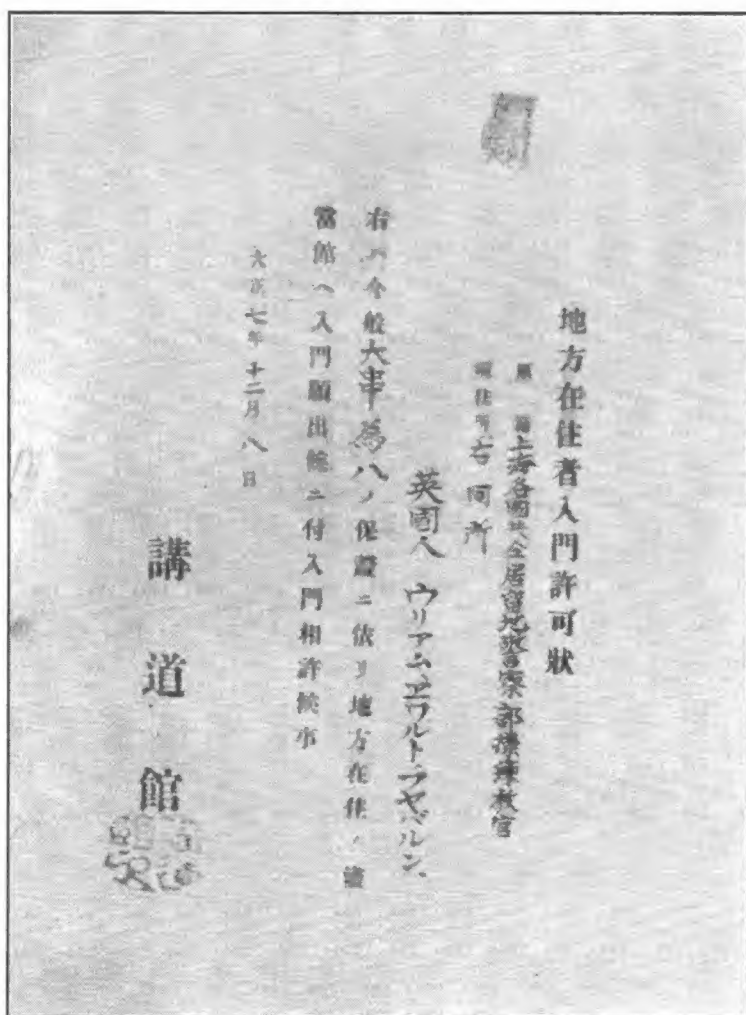 地方在住者入門許可狀
原籍上海各國共仝居留地警察部操練教官
現住所右同所
英國人ウリアム、ヱワルト、フヤバルン、
右ハ今般大串爲八ノ保證ニ依リ地方在住ノ儘
當館ヘ入門願出候ニ付入門相許候事
大正七年十二月八日
講道館